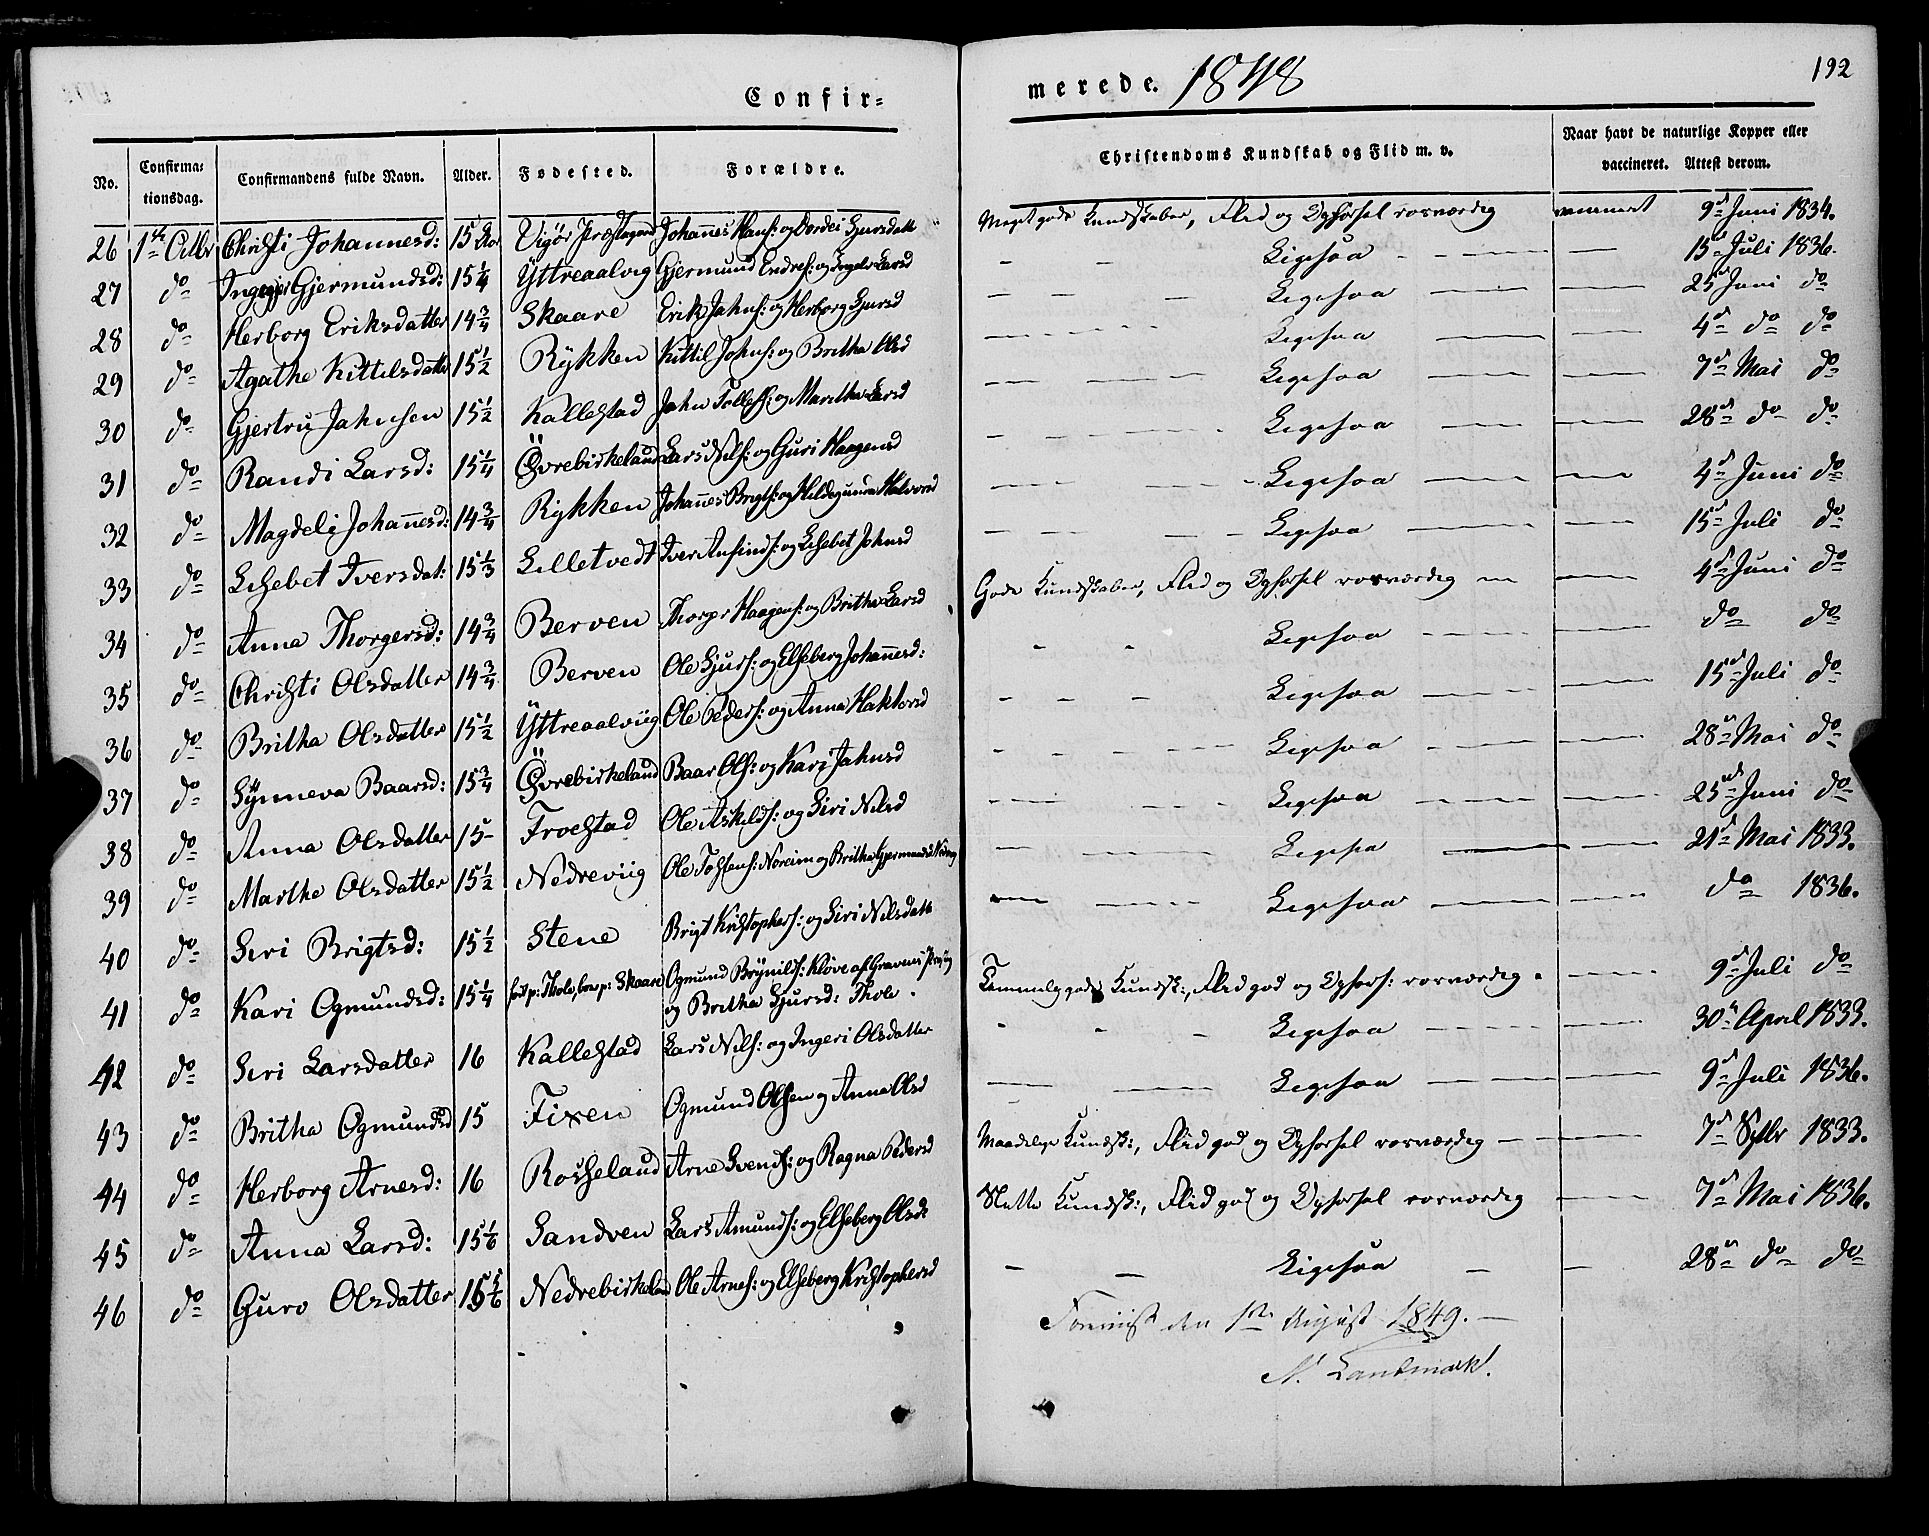 Confir=
No. Confirma=tionsdag. Confirmandens fulde Navn. Alder. Fødested. Forældre.
26 1ste Christi Johannesd: 15 Vigør Præstegaard Johannes Hans: og Sjursdatt
27 do Gjermundsd: 15 1/4 Yttreaalvig Gjermund Endres: og Larsd
28 do Herborg Eriksdatter 14 3/4 Skaare Erik Jahns: og Herborg Sjursd
29 do Agathe Kittelsdatter 15 1/2 Rykken Kittil Johns: og Britha Olsd
30 do Gjertru Jahnsen 15 1/2 Kallestad Jahn Tolless: og Maritha Larsd
31 do Randi Larsd: 15 1/4 Øvrebirkeland Lars Nils: og Guri Haagensd
32 do Magdeli Johannesd: 14 3/4 Rykken Johannes Brigts: og Hildegunna Halvorsd
33 do Lisebet Iversdat: 15 1/3 Lilletvedt Iver Anfinds: og Lisebet Johnsd
34 do Anna Thorgersd: 14 3/4 Berven Haagens: og Britha Larsd
35 do Christi Olsdatter 14 3/4 Berven Ole Sjurs: og Elseberg Johannesd:
36 do Britha Olsdatter 15 1/2 Yttreaalviig Ole Peders: og Anna Haktorsd
37 do Synneva Baarsd: 15 3/4 Øvrebirkeland Baar Ols: og Kari Jahnsd
38 do Anna Olsdatter 15 - Froestad Ole Askilds: og Siri Nilsd
39 do Marthe Olsdatter 15 1/2 Nedreviig Ole Tostens: Noreim og Britha Gjermundsd
40 do Siri Brigtsd: 15 1/2 Stene Brigt Kristophers: og Siri Nilsdatt
41 do Kari Ogmundsd: 15 1/4 fød p: Thole, boe p: Skaare Ogmund Brynilds: Kløve af Gravens
og Britha Sjursd: Thole.
42 do Siri Larsdatter 16 Kallestad Lars Nils: og Ingeri Olsdatter
43 do Britha Ogmundsd 15 Fixen Ogmund Olsen og Anna Olsd
44 do Herborg Arnesd: 16 Rosseland Arne Svends: og Ragna Pedersd
45 do Anna Larsd: 15 1/6 Sandven Lars Amunds: og Elseberg Olsd:
46 do Guro Olsdatter 15 5/6 Nedrebirkeland Ole Arnes: og Elseberg Kristophersd
merede. 1848 192
Christendoms Kundskab og Flid m. v. Naar havt de naturlige Kopper eller vaccineret. Attest derom.
Meget gode Kundskaber, Flid og Opførsel rosværdig vaccineret 9de Juni 1834.
Ligesaa 15de Juli 1836.
Ligesaa 25de Juni do
Ligesaa 4de do do
Ligesaa 7de Mai do
Ligesaa 28de do do
Ligesaa 4de Juni do
Ligesaa 15de Juli do
Gode Kundskaber, Flid og Opførsel rosværdig 4de Juni do
Ligesaa do do
Ligesaa 15de Juli do
Ligesaa 28de Mai do
Ligesaa 25de Juni do
Ligesaa 21de Mai 1833.
Ligesaa do 1836.
Temmelig gode Kundsk:, Flid god og Opførs: rosværdig 9de Juli do
Ligesaa 30te April 1833.
Ligesaa 9de Juli 1836.
Maadelige Kundsk:, Flid god og Opførsel rosværdig 7de Septbr 1833.
Slette Kundsk:, Flid god og Opførsel rosværdig 7de Mai 1836.
Ligesaa 28de do do
den 1ste August 1849.
N. Landmark.